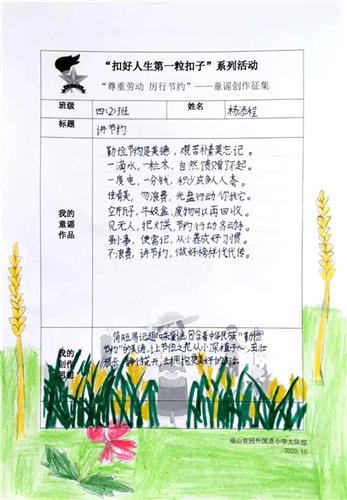 “扣好人生第一粒扣子”系列活动
“尊重劳动 厉行节约”——童谣创作征集
班级 四(2)班 姓名 杨添程
标题 讲节约
我的童谣作品
勤俭节约是美德，艰苦朴素莫忘记。
一滴水，一粒米，自然馈赠了不起。
一度电，一分钱，积少成多人人夸。
佳肴美，勿浪费，光盘行动你我它。
空瓶子，牛奶盒，废物可以再回收。
见无人，把灯关，节约行动齐动手。
虽小事，使富记，从小养成好习惯。
不浪费，讲节约，做好榜样代代传。
我的创作
简短易记
包含着中华民族“勤俭
节约”的美德，让节俭之花从小深植于心，茁壮
成长，静待花开，去拥抱更美好的
福山花园外国语小学大队部
2020.10